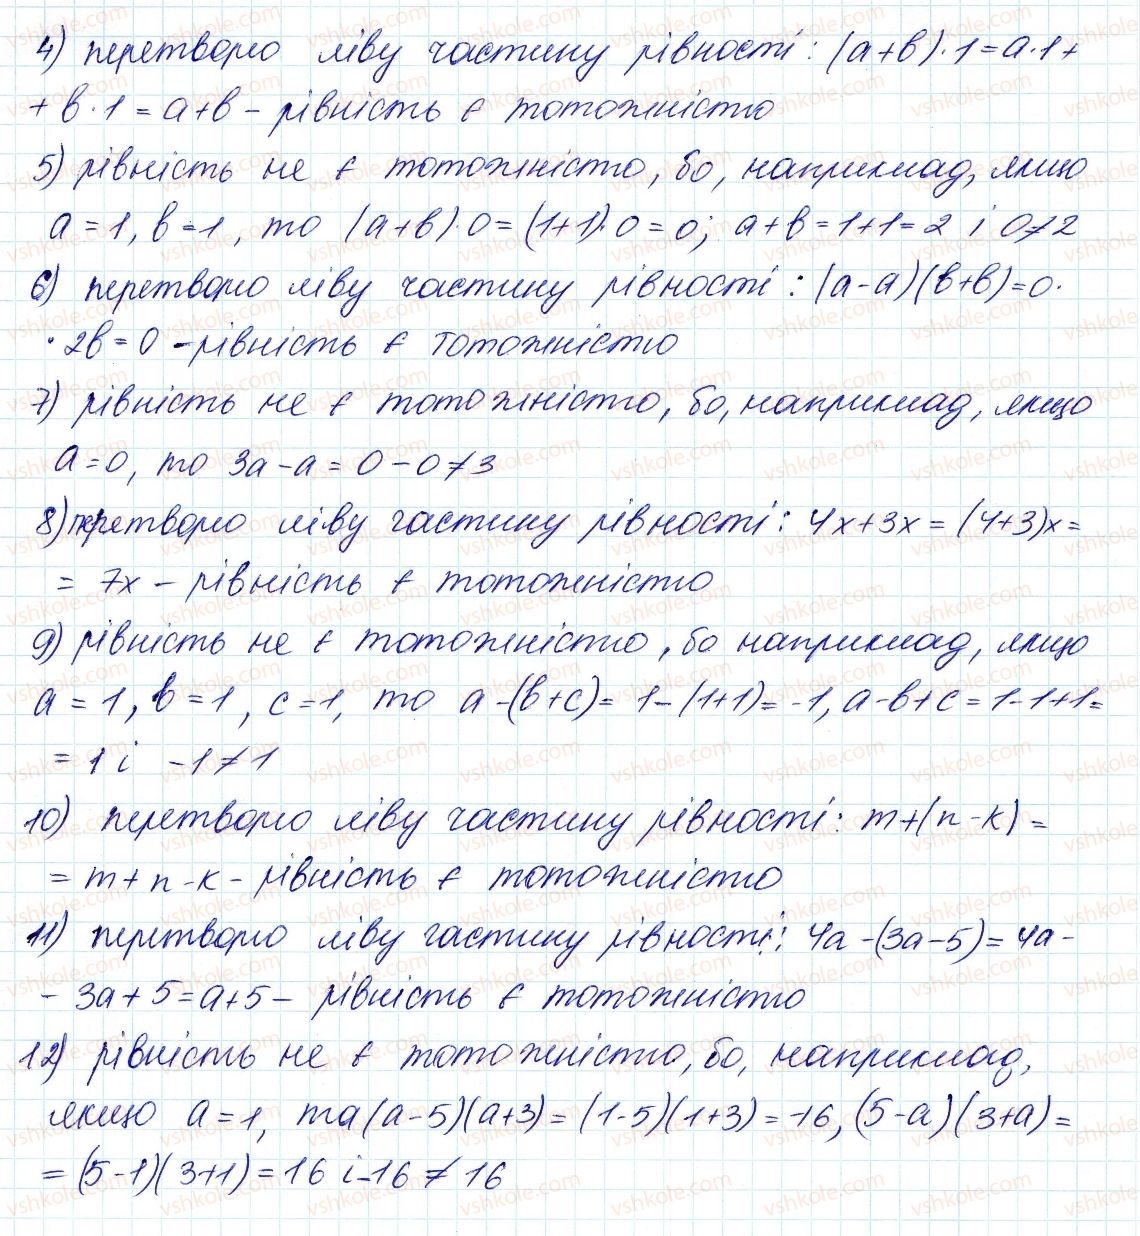 4) перетворю ліву частину рівності: (a+b)·1=a·1+
+b·1=a+b – рівність є тотожністю
5) рівність не є тотожністю, бо, наприклад, якщо
a=1, b=1, то (a+b)·0=(1+1)·0=0; a+b=1+1=2 і 0≠2
6) перетворю ліву частину рівності: (a-a)(b+b)=0·
·2b=0 – рівність є тотожністю
7) рівність не є тотожністю, бо, наприклад, якщо
a=0, то 3a-a=0-0≠3
8) перетворю ліву частину рівності: 4x+3x=(4+3)x=
=7x – рівність є тотожністю
9) рівність не є тотожністю, бо наприклад, якщо
a=1, b=1, c=1, то a-(b+c)=1-(1+1)=-1, a-b+c=1-1+1=
=1 і -1≠1
10) перетворю ліву частину рівності: m+(n-k)=
=m+n-k – рівність є тотожністю
11) перетворю ліву частину рівності: 4a-(3a-5)=4a-
-3a+5=a+5 – рівність є тотожністю
12) рівність не є тотожністю, бо, наприклад,
якщо a=1, та (a-5)(a+3)=(1-5)(1+3)=-16, (5-a)(3+a)=
=(5-1)(3+1)=16 і -16≠16